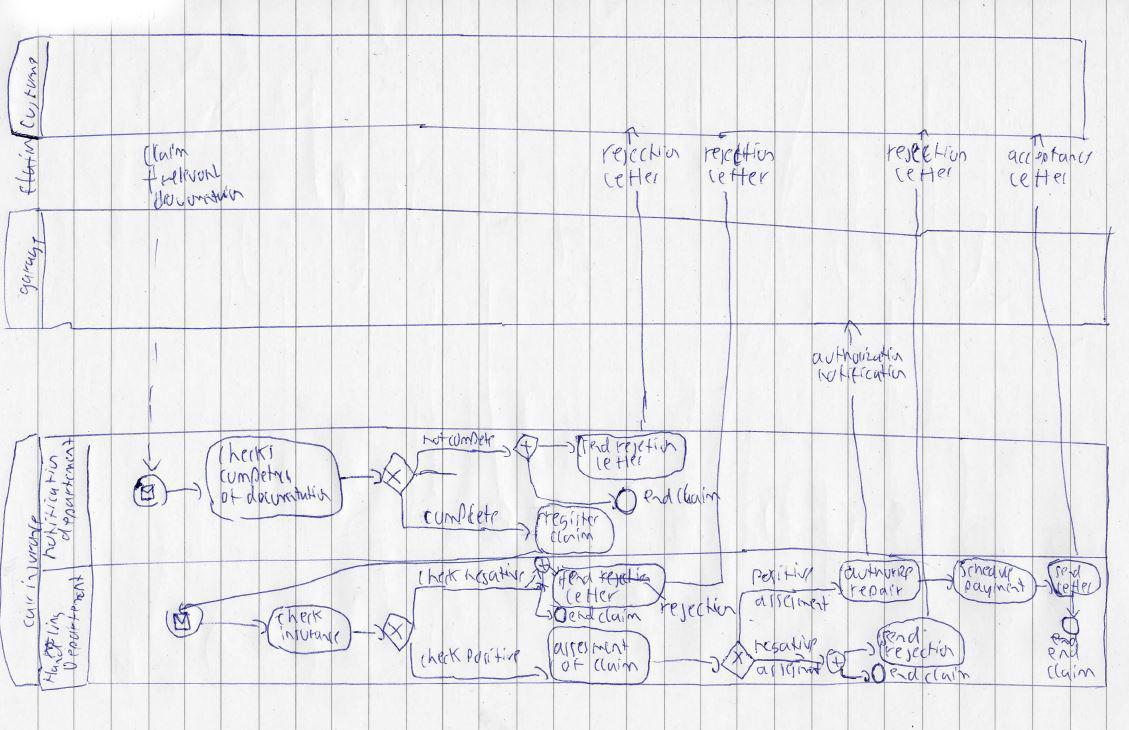 Claim
+ relevant
rejection
letter
rejection
letter
rejection
letter
acceptance
letter
garage
authorization
notification
car insurance
notification
departement
checks
of documentation
not complete
send rejection
letter
end claim
complete
register
claim
Handling
Departement
check
insurance
check negative
send rejection
letter
end claim
rejection
check positive
assesment
of claim
positive
assesment
authorize
repair
schedule
payment
send
letter
negative
send
rejection
end claim
end
claim